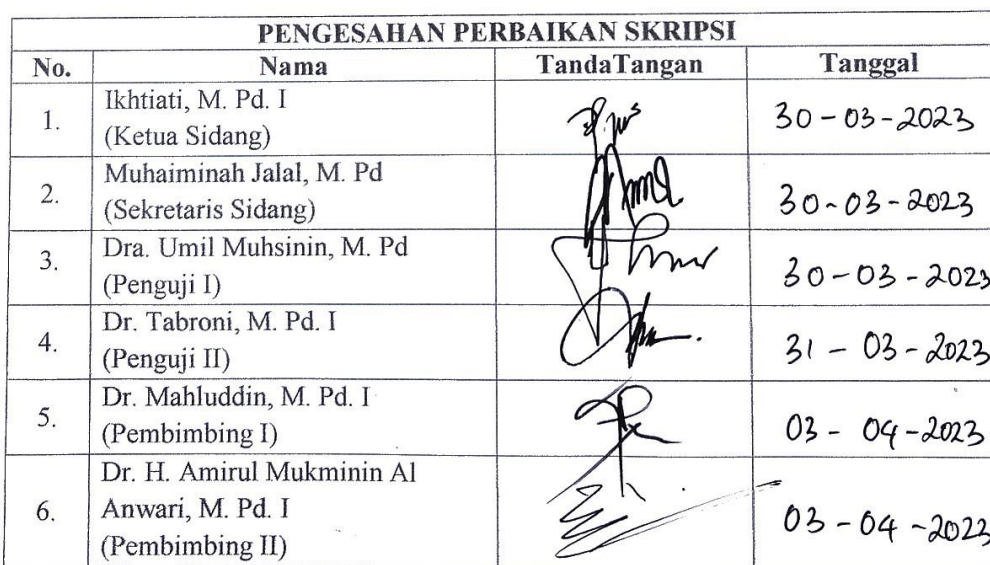 PENGESAHAN PERBAIKAN SKRIPSI
No. Nama TandaTangan Tanggal
1. Ikhtiati, M. Pd. I
(Ketua Sidang) 30-03-2023
2. Muhaiminah Jalal, M. Pd
(Sekretaris Sidang) 30-03-2023
3. Dra. Umil Muhsinin, M. Pd
(Penguji I) 30-03-2023
4. Dr. Tabroni, M. Pd. I
(Penguji II) 31-03-2023
5. Dr. Mahluddin, M. Pd. I
(Pembimbing I) 03-04-2023
Dr. H. Amirul Mukminin Al
6. Anwari, M. Pd. I 03-04-2023
(Pembimbing II)